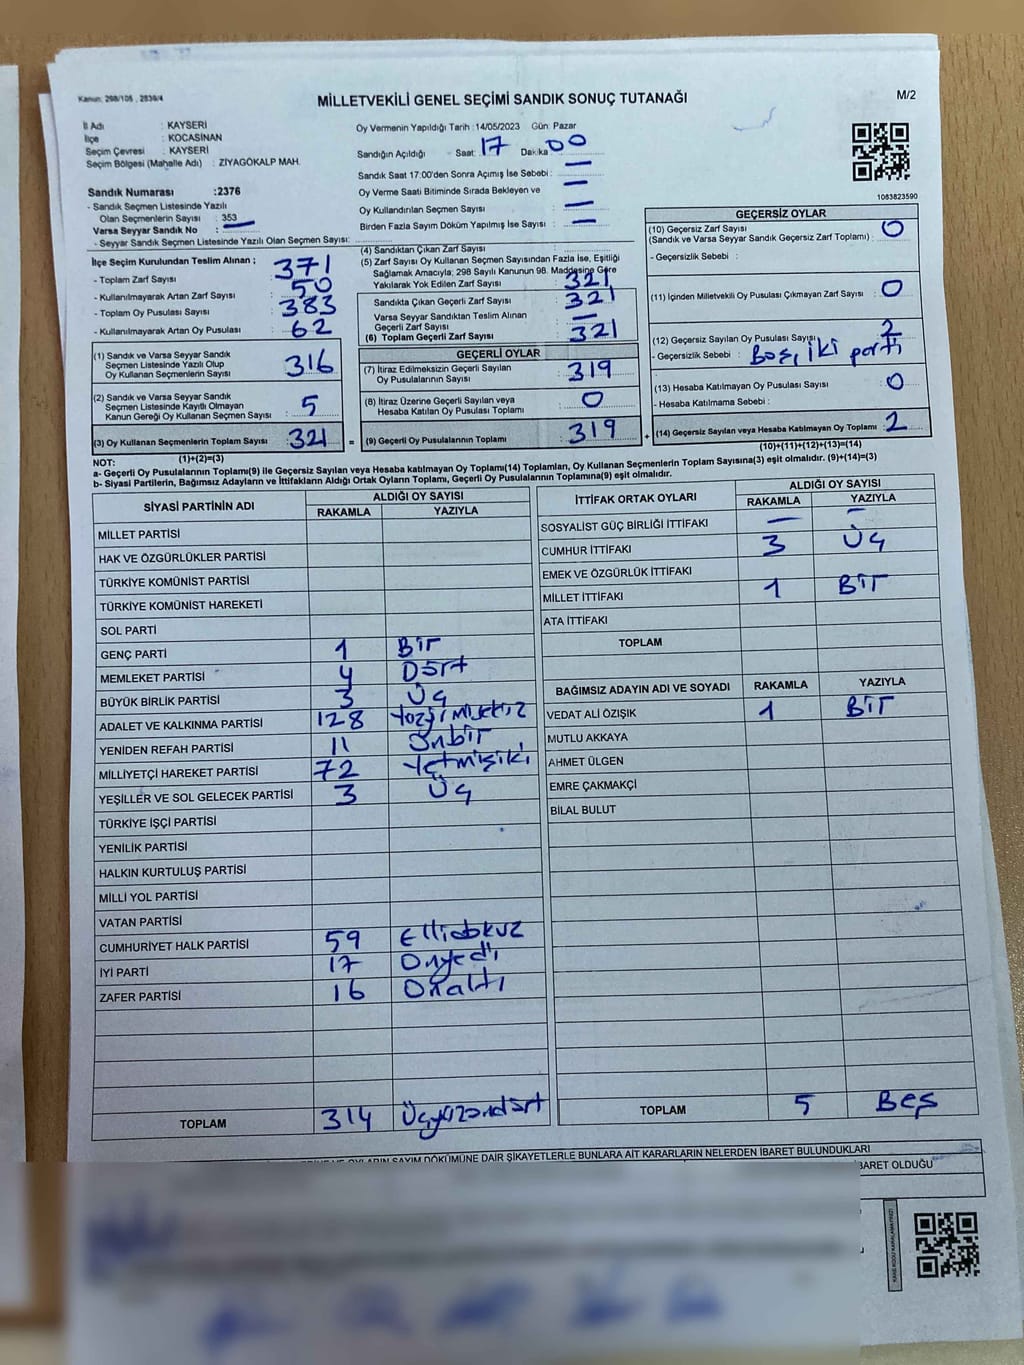 Kanun: 298/105 , 2839/4
MİLLETVEKİLİ GENEL SEÇİMİ SANDIK SONUÇ TUTANAĞI
M/2
İl Adı : KAYSERİ
İlçe : KOCASİNAN
Seçim Çevresi : KAYSERİ
Seçim Bölgesi (Mahalle Adı) : ZİYAGÖKALP MAH.
Sandık Numarası :2376
- Sandık Seçmen Listesinde Yazılı
Olan Seçmenlerin Sayısı : 353
Varsa Seyyar Sandık No : —
- Seyyar Sandık Seçmen Listesinde Yazılı Olan Seçmen Sayısı:
Oy Vermenin Yapıldığı Tarih :14/05/2023 Gün: Pazar
Sandığın Açıldığı Saat: 17 Dakika 00
Sandık Saat 17:00'den Sonra Açımış İse Sebebi : —
Oy Verme Saati Bitiminde Sırada Bekleyen ve —
Oy Kullandırılan Seçmen Sayısı —
Birden Fazla Sayım Döküm Yapılmış İse Sayısı : —
1083823590
İlçe Seçim Kurulundan Teslim Alınan :
- Toplam Zarf Sayısı 371
- Kullanılmayarak Artan Zarf Sayısı : 50
- Toplam Oy Pusulası Sayısı : 383
- Kullanılmayarak Artan Oy Pusulası : 62
(1) Sandık ve Varsa Seyyar Sandık
Seçmen Listesinde Yazılı Olup
Oy Kullanan Seçmenlerin Sayısı : 316
(2) Sandık ve Varsa Seyyar Sandık
Seçmen Listesinde Kayıtlı Olmayan
Kanun Gereği Oy Kullanan Seçmen Sayısı : 5
(3) Oy Kullanan Seçmenlerin Toplam Sayısı : 321 =
(1)+(2)=(3)
(4) Sandıktan Çıkan Zarf Sayısı :
(5) Zarf Sayısı Oy Kullanan Seçmen Sayısından Fazla İse, Eşitliği
Sağlamak Amacıyla; 298 Sayılı Kanunun 98. Maddesine Göre
Yakılarak Yok Edilen Zarf Sayısı : 321
Sandıkta Çıkan Geçerli Zarf Sayısı : 321
Varsa Seyyar Sandıktan Teslim Alınan
Geçerli Zarf Sayısı : —
(6) Toplam Geçerli Zarf Sayısı : 321
GEÇERLİ OYLAR
(7) İtiraz Edilmeksizin Geçerli Sayılan
Oy Pusulalarının Sayısı : 319
(8) İtiraz Üzerine Geçerli Sayılan veya
Hesaba Katılan Oy Pusulası Toplamı : 0
(9) Geçerli Oy Pusulalarının Toplamı : 319 +
GEÇERSİZ OYLAR
(10) Geçersiz Zarf Sayısı 0
(Sandık ve Varsa Seyyar Sandık Geçersiz Zarf Toplamı) :
- Geçersizlik Sebebi :
(11) İçinden Milletvekili Oy Pusulası Çıkmayan Zarf Sayısı : 0
(12) Geçersiz Sayılan Oy Pusulası Sayısı : 2
- Geçersizlik Sebebi : Boş, iki parti
(13) Hesaba Katılmayan Oy Pusulası Sayısı : 0
- Hesaba Katılmama Sebebi :
(14) Geçersiz Sayılan veya Hesaba Katılmayan Oy Toplamı : 2
(10)+(11)+(12)+(13)=(14)
NOT:
a- Geçerli Oy Pusulalarının Toplamı(9) ile Geçersiz Sayılan veya Hesaba katılmayan Oy Toplamı(14) Toplamları, Oy Kullanan Seçmenlerin Toplam Sayısına(3) eşit olmalıdır. (9)+(14)=(3)
b- Siyasi Partilerin, Bağımsız Adayların ve İttifakların Aldığı Ortak Oyların Toplamı, Geçerli Oy Pusulalarının Toplamına(9) eşit olmalıdır.
SİYASİ PARTİNİN ADI
ALDIĞI OY SAYISI
RAKAMLA YAZIYLA
MİLLET PARTİSİ
HAK VE ÖZGÜRLÜKLER PARTİSİ
TÜRKİYE KOMÜNİST PARTİSİ
TÜRKİYE KOMÜNİST HAREKETİ
SOL PARTİ
GENÇ PARTİ 1 Bir
MEMLEKET PARTİSİ 4 Dört
BÜYÜK BİRLİK PARTİSİ 3 Üç
ADALET VE KALKINMA PARTİSİ 128 Yüzyirmisekiz
YENİDEN REFAH PARTİSİ 11 Onbir
MİLLİYETÇİ HAREKET PARTİSİ 72 Yetmişiki
YEŞİLLER VE SOL GELECEK PARTİSİ 3 Üç
TÜRKİYE İŞÇİ PARTİSİ
YENİLİK PARTİSİ
HALKIN KURTULUŞ PARTİSİ
MİLLİ YOL PARTİSİ
VATAN PARTİSİ
CUMHURİYET HALK PARTİSİ 59 Ellidokuz
İYİ PARTİ 17 Onyedi
ZAFER PARTİSİ 16 Onaltı
TOPLAM 314 Üçyüzondört
İTTİFAK ORTAK OYLARI
ALDIĞI OY SAYISI
RAKAMLA YAZIYLA
SOSYALİST GÜÇ BİRLİĞİ İTTİFAKI — —
CUMHUR İTTİFAKI 3 Üç
EMEK VE ÖZGÜRLÜK İTTİFAKI
MİLLET İTTİFAKI 1 Bir
ATA İTTİFAKI
TOPLAM
BAĞIMSIZ ADAYIN ADI VE SOYADI RAKAMLA YAZIYLA
VEDAT ALİ ÖZIŞIK 1 Bir
MUTLU AKKAYA
AHMET ÜLGEN
EMRE ÇAKMAKÇİ
BİLAL BULUT
TOPLAM 5 Beş
OYLARIN SAYIM DÖKÜMÜNE DAİR ŞİKAYETLERLE BUNLARA AİT KARARLARIN NELERDEN İBARET BULUNDUKLARI
İBARET OLDUĞU